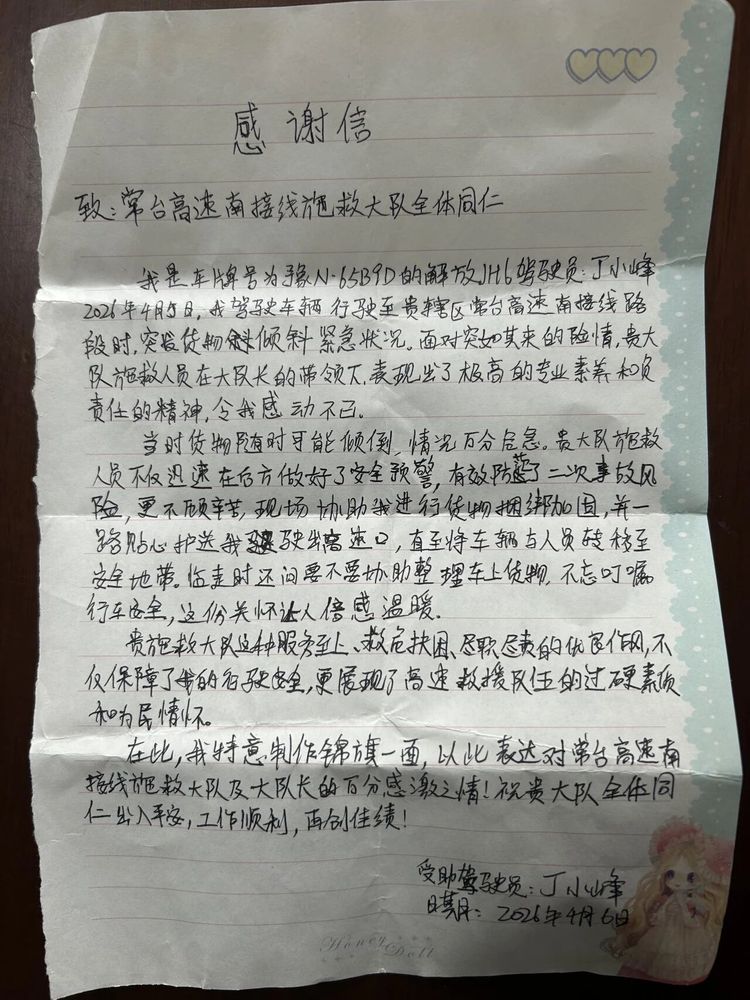 感谢信
致：常台高速南接线施救大队全体同仁
我是车牌号为豫N·65B9D的解放JH6驾驶员：丁小峰
2026年4月5日，我驾驶车辆行驶至贵辖区常台高速南接线路
段时，突发货物倾斜紧急状况。面对突如其来的险情，贵大
队施救人员在大队长的带领下，表现出了极高的专业素养和负
责任的精神，令我感动不已。
当时货物随时可能倾倒，情况万分危急。贵大队施救
人员不仅迅速在后方做好了安全预警，有效防范了二次事故风
险，更不顾辛苦，现场协助我进行货物捆绑加固，并一
路贴心护送我驶出高速口，直至将车辆与人员转移至
安全地带。临走时还问要不要协助整理车上货物，不忘叮嘱
行车安全，这份关怀让人倍感温暖。
贵施救大队这种服务至上、救危扶困、尽职尽责的优良作风，不
仅保障了我的行驶安全，更展现了高速救援队伍的过硬素质
和为民情怀。
在此，我特意制作锦旗一面，以此表达对常台高速南
接线施救大队及大队长的百分感激之情！祝贵大队全体同
仁出入平安，工作顺利，再创佳绩！
受助驾驶员：丁小峰
日期：2026年4月6日
Honey Doll